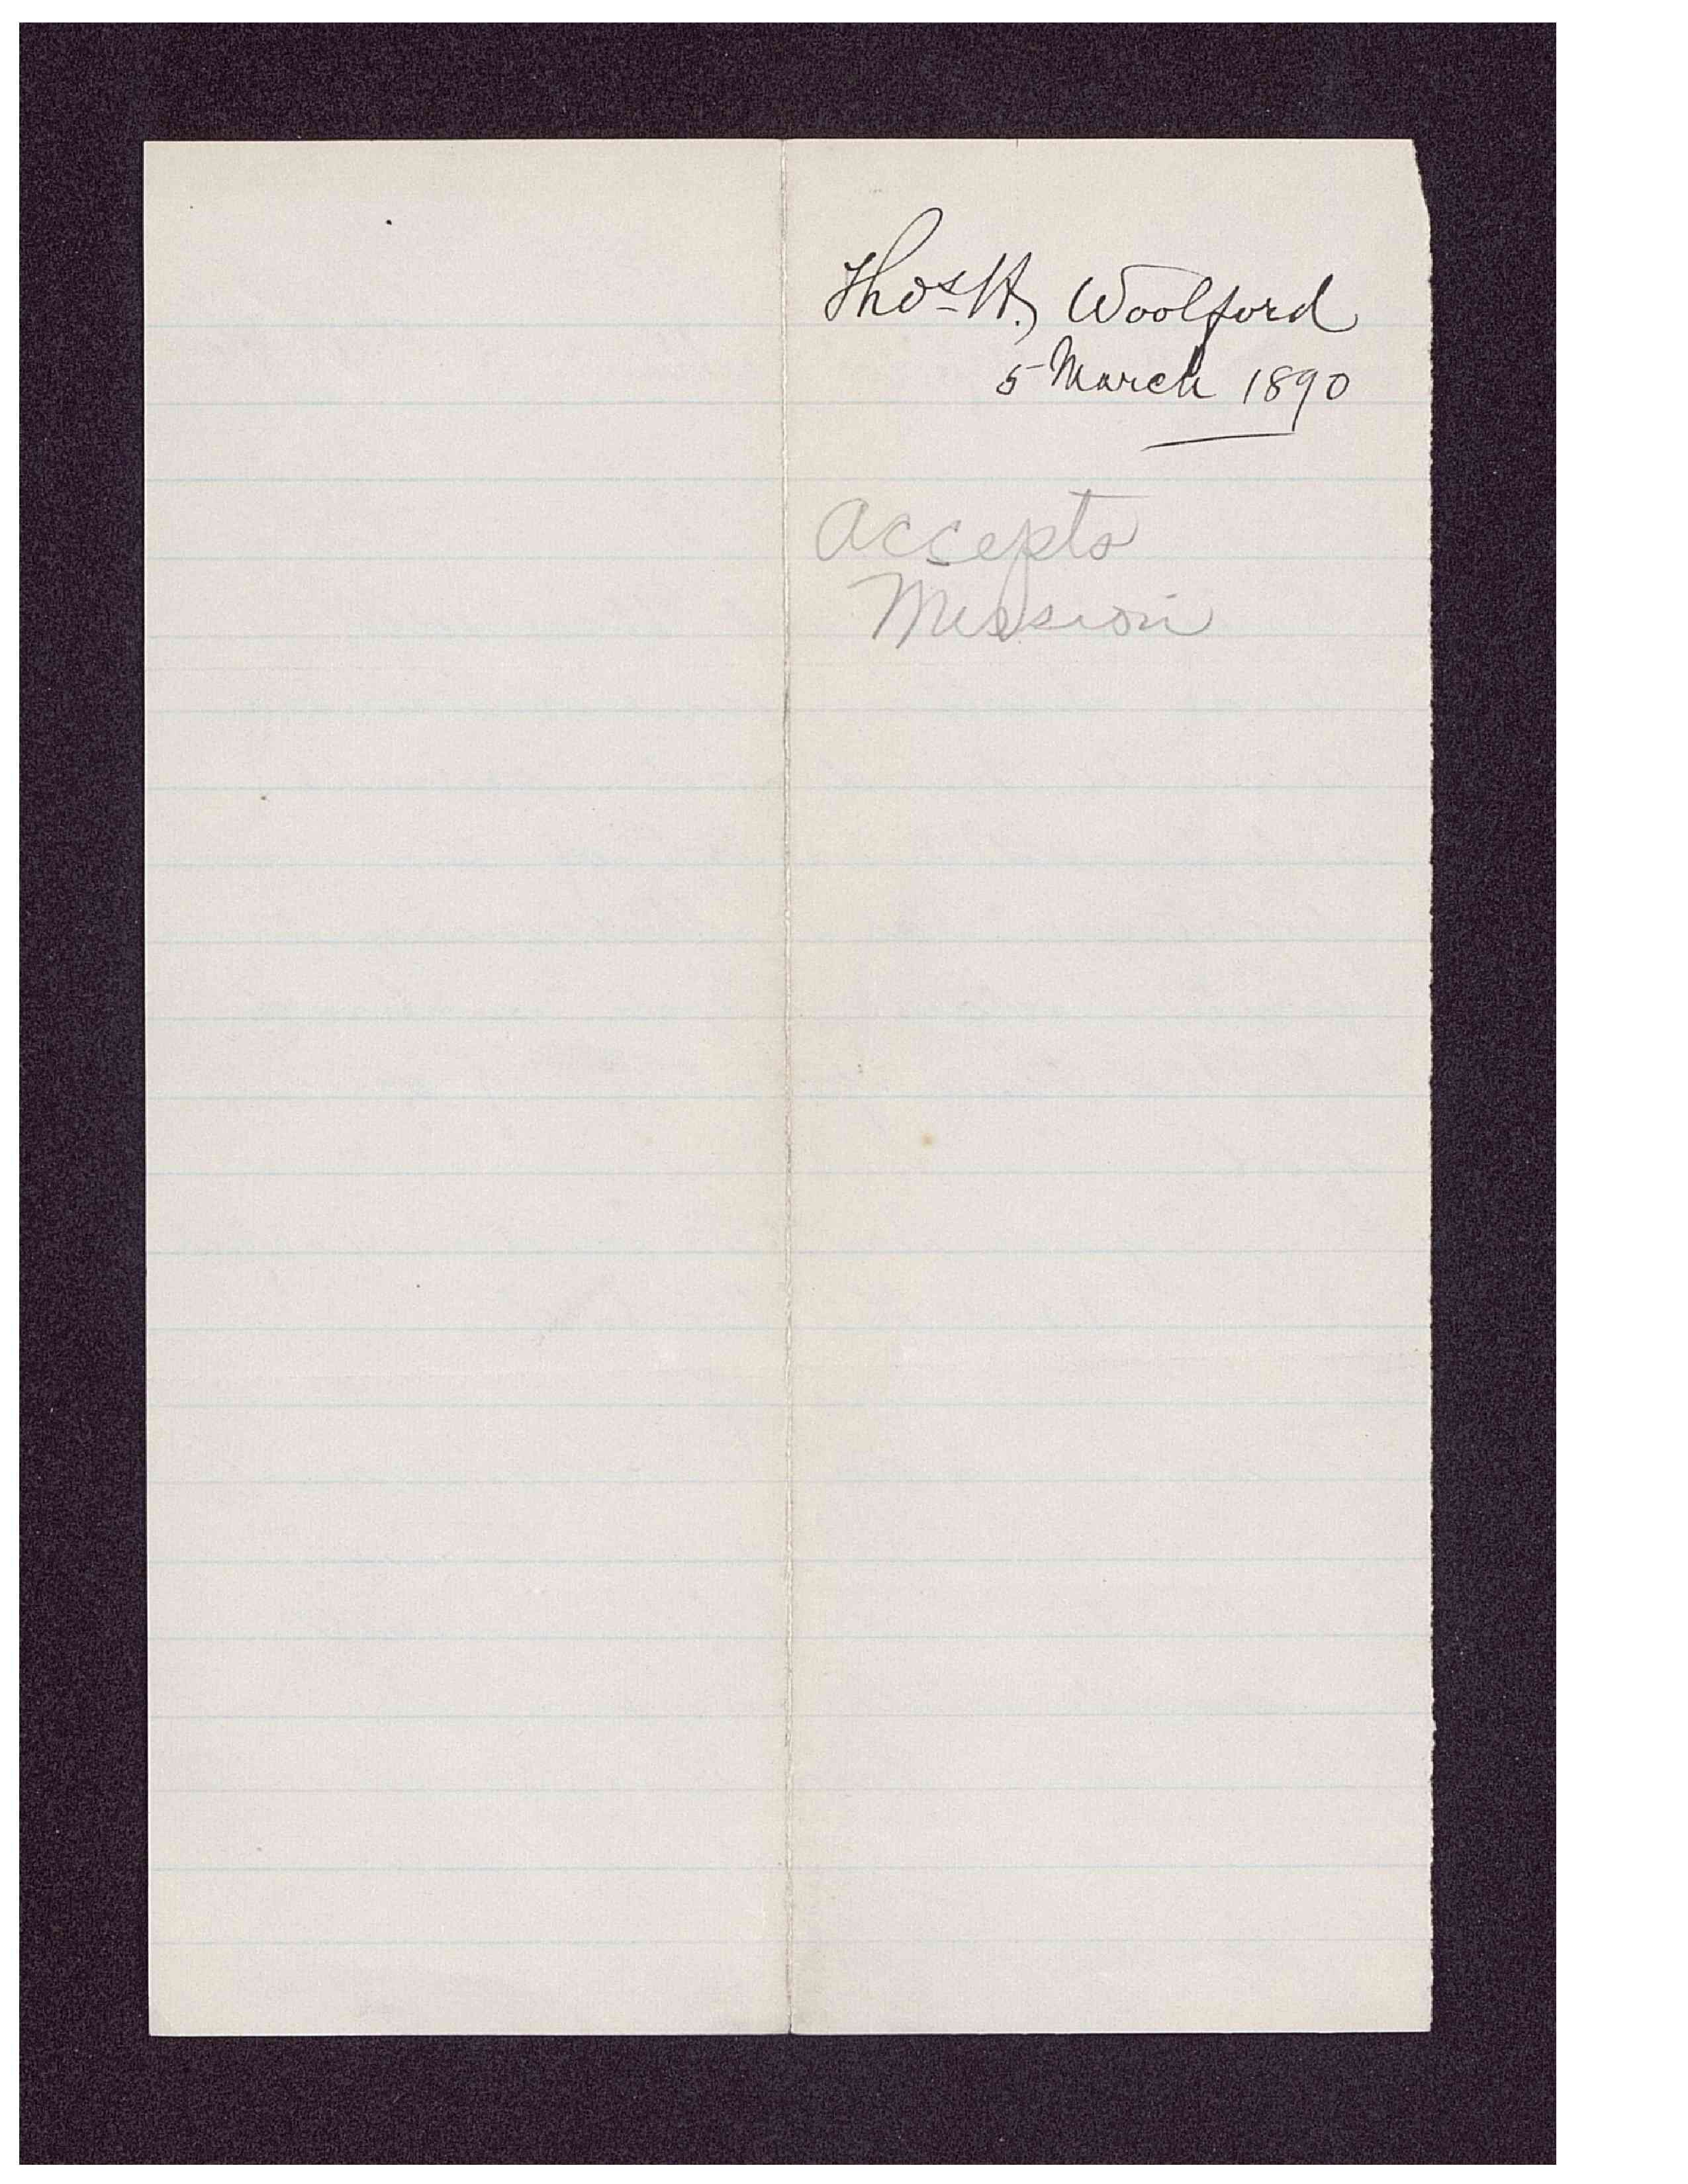 Thos H. Woolford
5 March 1890
accepts
Mission